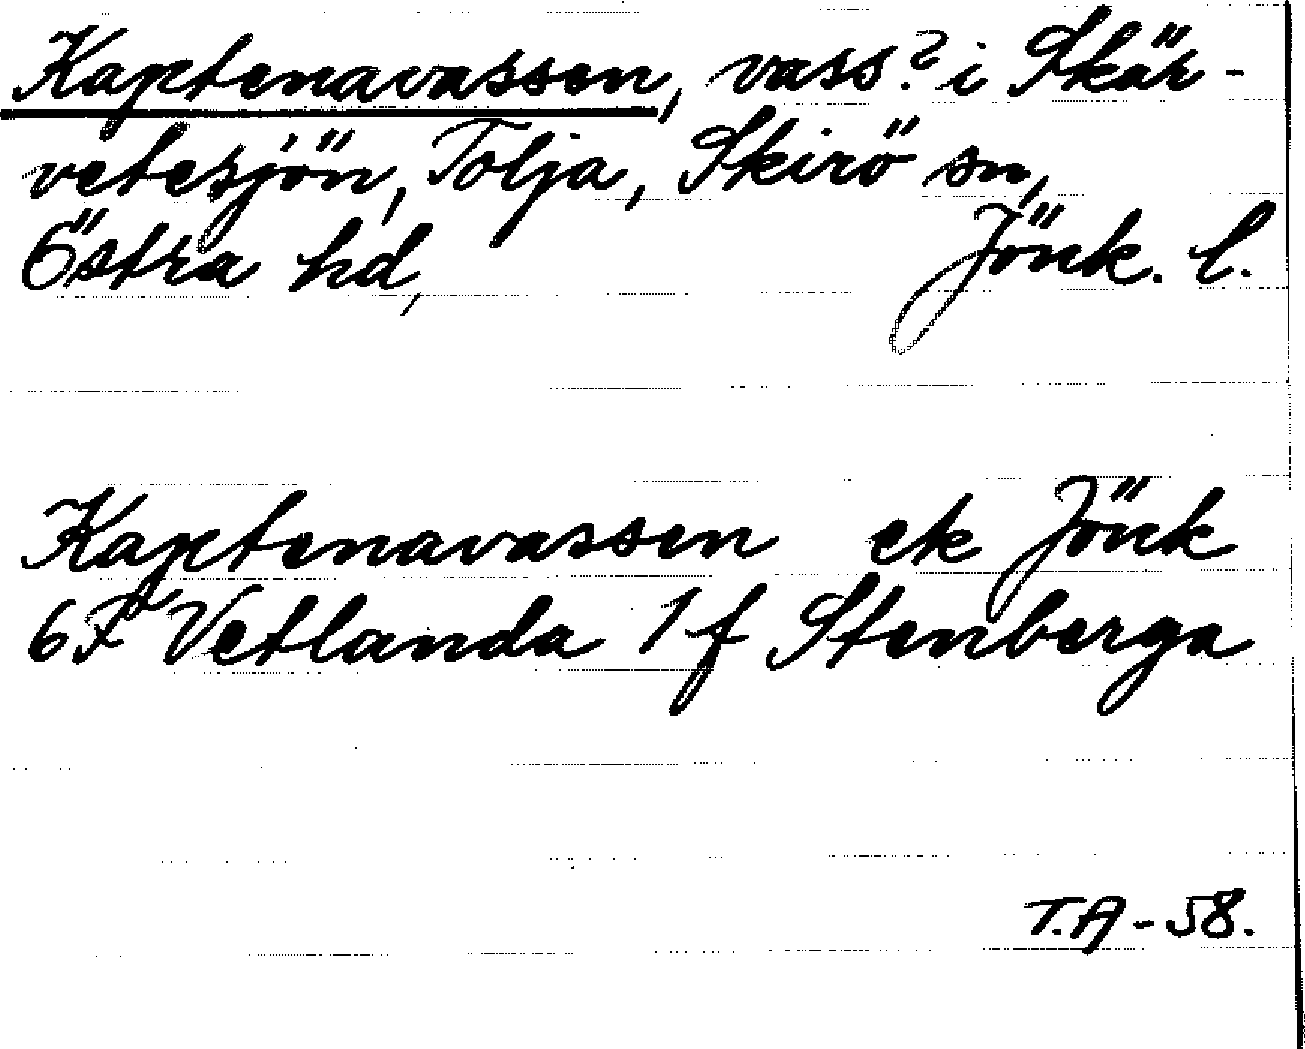 Kaptenavassen, vass? i Skär-
vetesjön, Tolja, Skirö sn,
Östra hd, Jönk. l.
Kaptenavassen ek Jönk
6F Vetlanda 1f Stenberga
T.A-58.